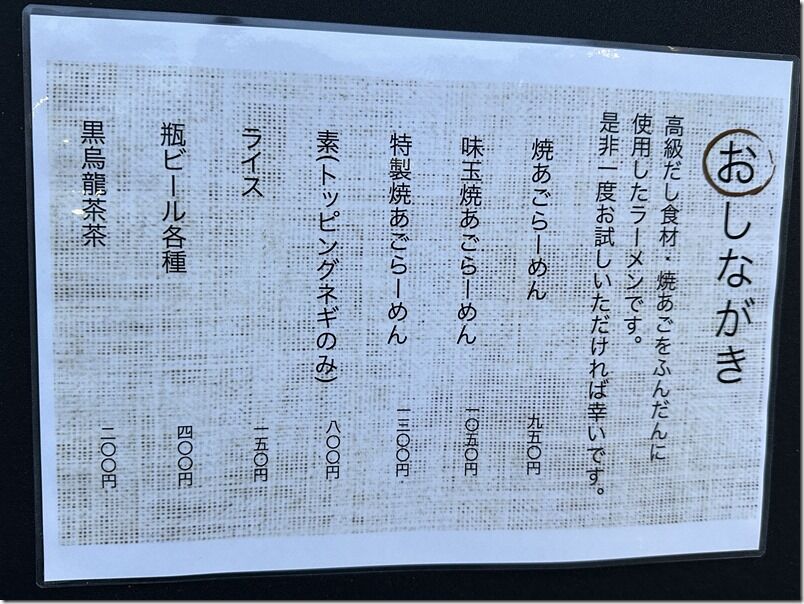 おしながき
高級だし食材・焼あごをふんだんに
使用したラーメンです。
是非一度お試しいただければ幸いです。
焼あごらーめん 九五〇円
味玉焼あごらーめん 一〇五〇円
特製焼あごらーめん 一三〇〇円
素(トッピングネギのみ) 八〇〇円
ライス 一五〇円
瓶ビール各種 四〇〇円
黒烏龍茶茶 二〇〇円